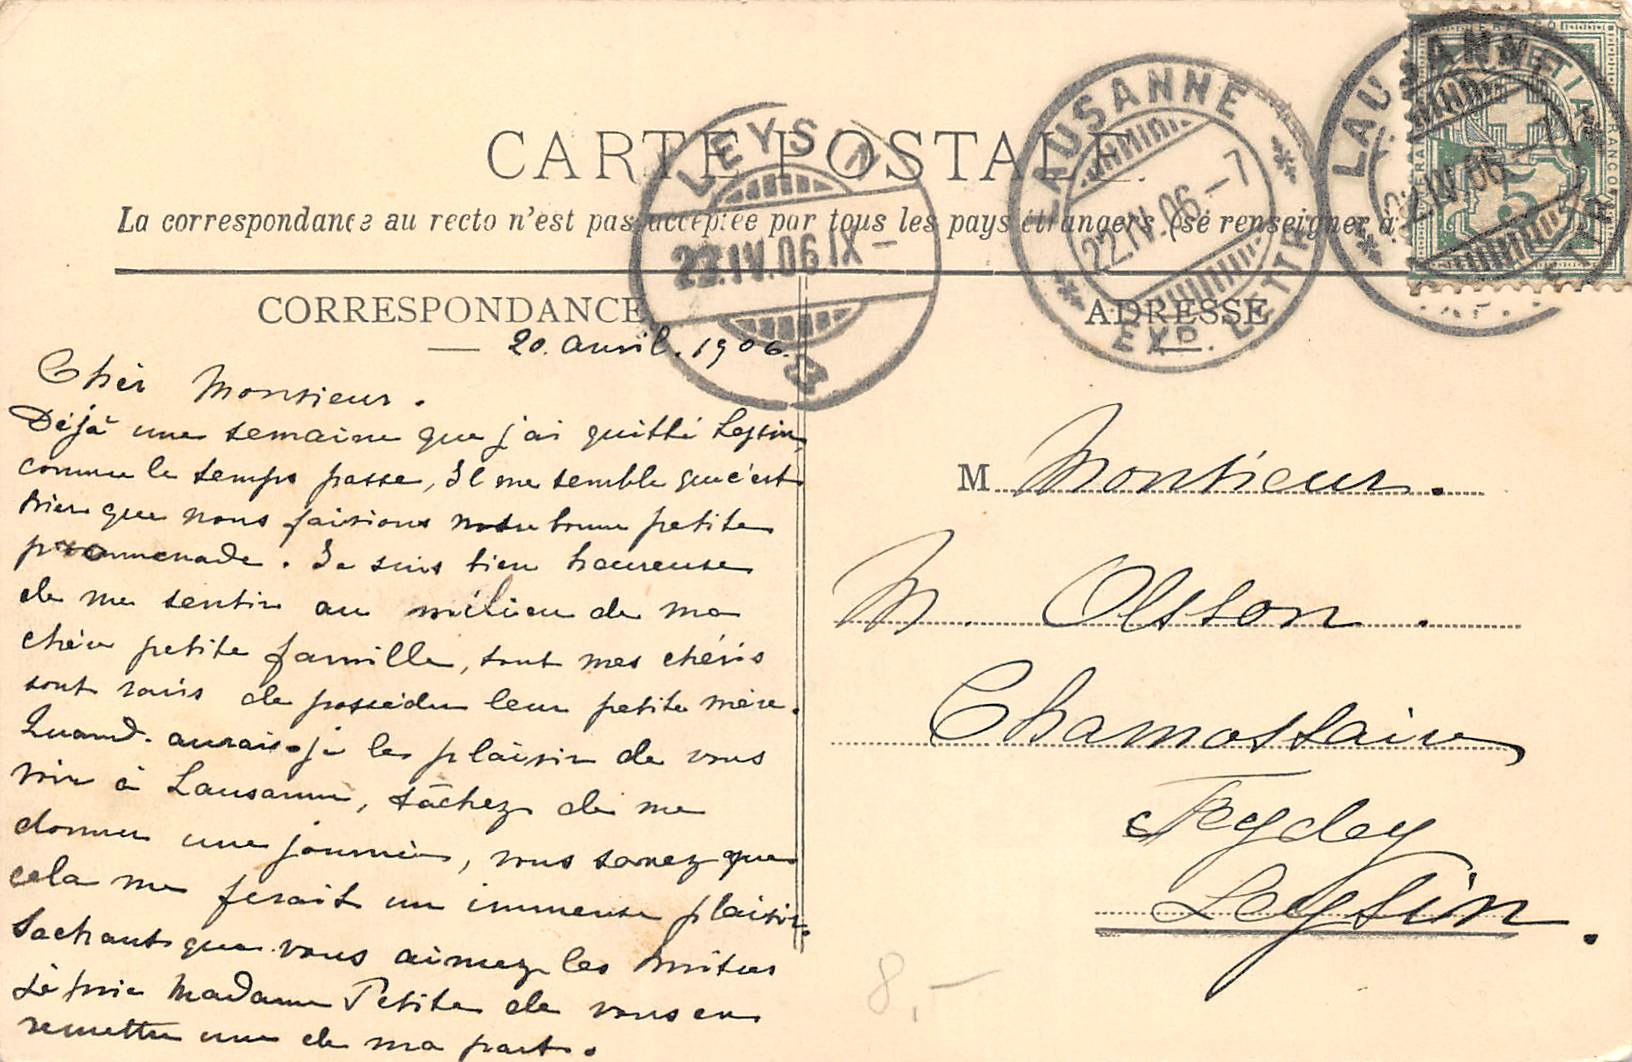 CARTE POSTALE
La correspondance au recto n'est pas acceptée par tous les pays étrangers (se renseigner à
CORRESPONDANCE
ADRESSE
LEYSIN
22.IV.06.IX-
LAUSANNE
22.IV.06.-7
EXP. LETTR.
LAUSANNE
22.IV.06.-7
HELVETIA
FRANCO
5
20. avril. 1906.
Chèr Monsieur.
Déjà une semaine que j'ai quitté Leysin,
comme le temps passe, Il me semble que c'est
hier que nous faisions notre bonne petite
prommenade. Je suis bien heureuse
de me sentir au milieu de ma
chère petite famille, tout mes chéris
sont ravis de posséder leur petite mère.
Quand. aurais-je le plaisir de vous
voir à Lausanne, tâchez de me
donner une journée, vous savez que
cela me ferait un immense plaisir.
Sachant que vous aimez les huîtres
je prie Madame Petite de vous en
remettre une de ma part.
M Monsieur.
M. Olsson.
Chamossaire,
Feydey
Leysin.
8.-